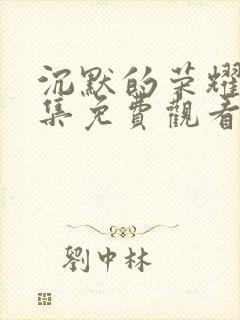 沉默的荣耀
集免費觀看
劉中林